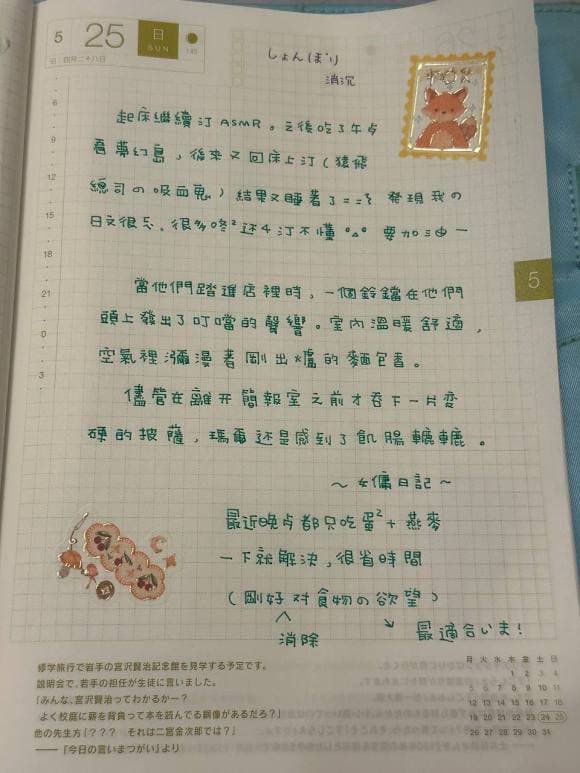 5 25 日 SUN
旧：四月二十八日 145
しょんぼり
消沉
起床繼續汀ASMR。之後吃了午点
看夢幻島，後來又回床上汀(猿飛
總司の吸血鬼) 結果又睡著了==?
發現我の
日文很忘，很多咚²还4汀不懂 °△° 要加油~
當他們踏進店裡時，一個鈴鐺在他們
頭上發出了叮噹的聲響。室內溫暖舒適，
空氣裡瀰漫著剛出爐的麵包香。
儘管在離开簡報室之前才吞下一片变
硬的披薩，瑪爾还是感到了飢腸轆轆。
～女傭日記～
最近晚点都只吃蛋²+燕麥
一下就解決，很省時間
(剛好对食物の欲望)
消除
最適合いま!
6
9
12
15
18
21
0
3
5
修学旅行で岩手の宮沢賢治記念館を見学する予定です。
説明会で、若手の担任が生徒に言いました。
「みんな、宮沢賢治ってわかるかー？
よく校庭に薪を背負って本を読んでる銅像があるだろ？」
他の先生方「？？？ それは二宮金次郎では？」
──『今日の言いまつがい』より
月 火 水 木 金 土 日
1 2 3 4
5 6 7 8 9 10 11
12 13 14 15 16 17 18
19 20 21 22 23 24 25
26 27 28 29 30 31